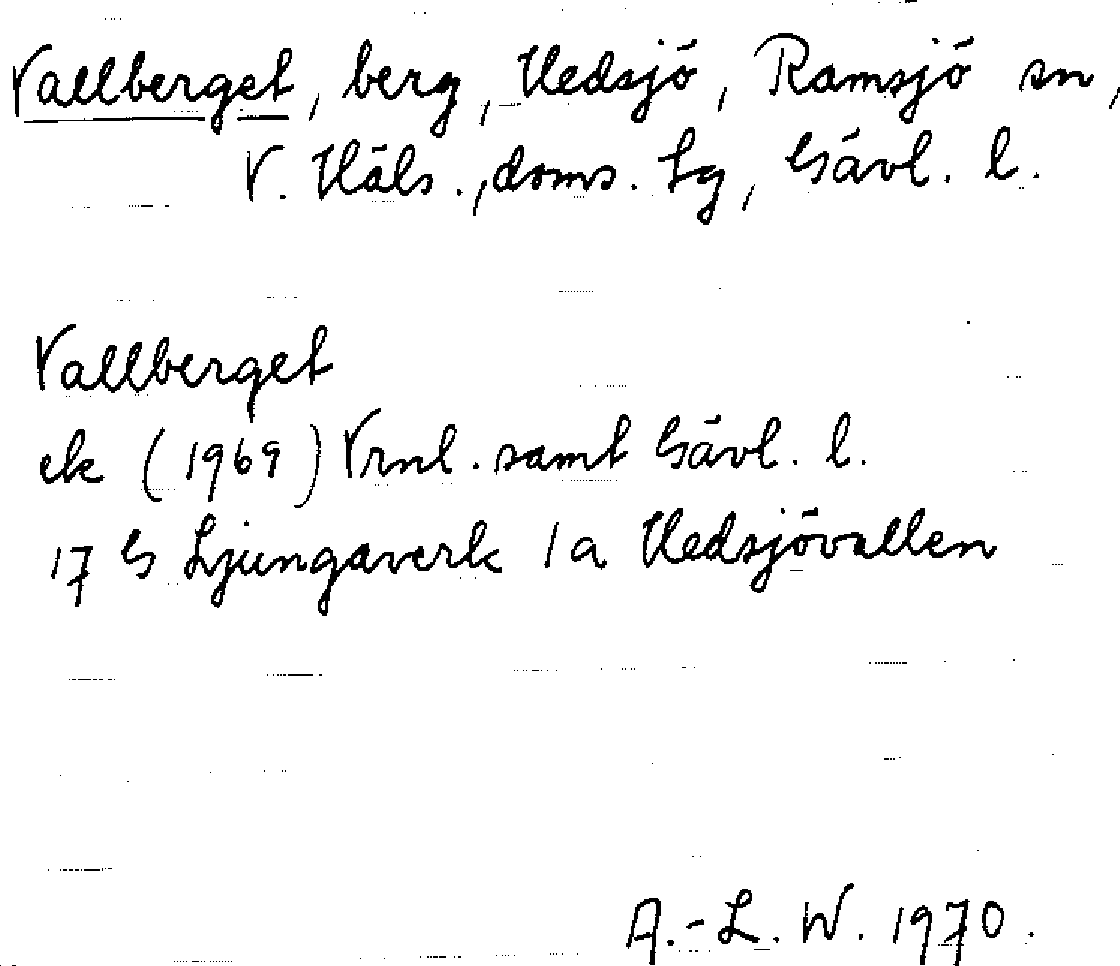 Vallberget, berg, Hedsjö, Ramsjö sn,
V. Häls., doms. Lg, Gävl. l.
Vallberget
ek (1969) Vrnl. samt Gävl. l.
17 G Ljungaverk 1a Hedsjövallen
A.-L. W. 1970.